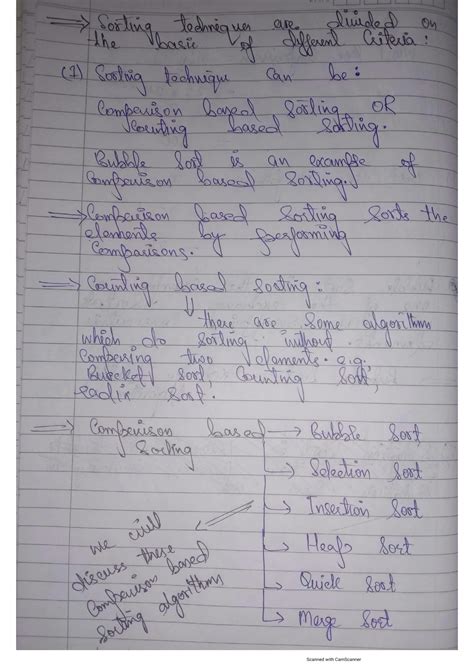 => Sorting techniques are divided on
the basic of different Criteria:
(1) Sorting technique can be:
Comparison based sorting OR
Counting based sorting.
Bubble sort is an example of
Comparison based sorting.
=> Comparison based sorting sorts the
elements by performing
Comparisons.
=> Counting based sorting:
there are some algorithm
which do sorting without
Comparing two elements. e.g.
Buecket sort, Counting sort,
radix sort.
=> Comparison based → Bubble sort
sorting
→ Selection sort
→ Insertion sort
→ Heap sort
→ Quick sort
→ Merge sort
we will
discuss these
Comparison based
sorting algorithms
Scanned with CamScanner